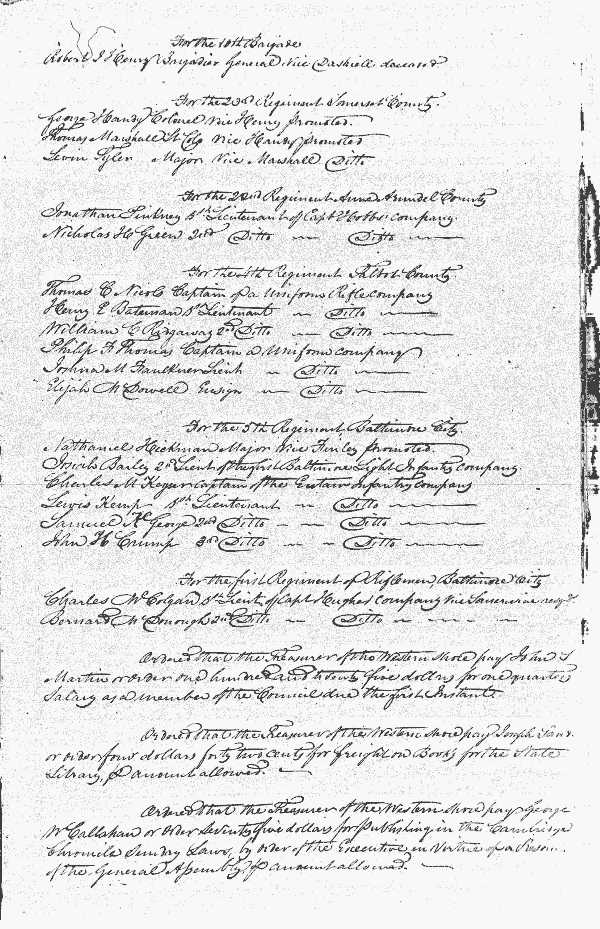 For the 10th Brigade
Robert J Henry Brigadier General Vice Dashiell deceased
For the 23rd Regiment Somerset County.
George Handy Colonel Vice Henry Promoted.
Thomas Marshall Lt Col Vice Handy promoted
Levin Tyler Major Vice Marshall Ditto
For the 22nd Regiment Anne Arundel County
Jonathan Pinkney 1st Lieutenant of Capt Hobbs company.
Nicholas H Green 2nd Ditto — Ditto —
For the 4th Regiment Talbot County.
Thomas C Nicols Captain of a Uniform Rifle company
Henry E Bateman 1st Lieutenant — Ditto —
William C Ridgaway 2d Ditto — Ditto —
Philip F Thomas Captain a Uniform company
Joshua M Faulkner Lieut — Ditto —
Elijah McDowell Ensign — Ditto —
For the 5th Regiment Baltimore City
Nathaniel Hickman Major Vice Finley Promoted.
Bailey 2d Lieut of the first Baltimore Light Infantry company
Charles M Keyser Captain of the Eutaw Infantry company
Lewis Kemp 1st Lieutenant — Ditto —
Samuel K George 2nd Ditto — — Ditto —
John H Crump 3rd Ditto — — Ditto —
For the first Regiment of Riflemen, Baltimore City
Charles McColgan 1st Lieut of Capt Hughes Company Vice resgd.
Bernard McDonough 2nd Ditto — Ditto — — — —
Ordered that the Treasurer of the Western shore pay John S
Martin or order one hundred and twenty five dollars for one quarters
Salary as a member of the Council due the first Instant.
Ordered that the Treasurer of the Western shore pay Joseph
or order four dollars forty two cents for freight on Books for the State
Library, p amount allowed. —
Ordered that the Treasurer of the Western shore pay George
W Callahan or order Seventy five dollars for Publishing in the Cambridge
Chronicle Sunday Laws, by order of the Executive in Virtue of a
of the General Assembly, p amount allowed. —